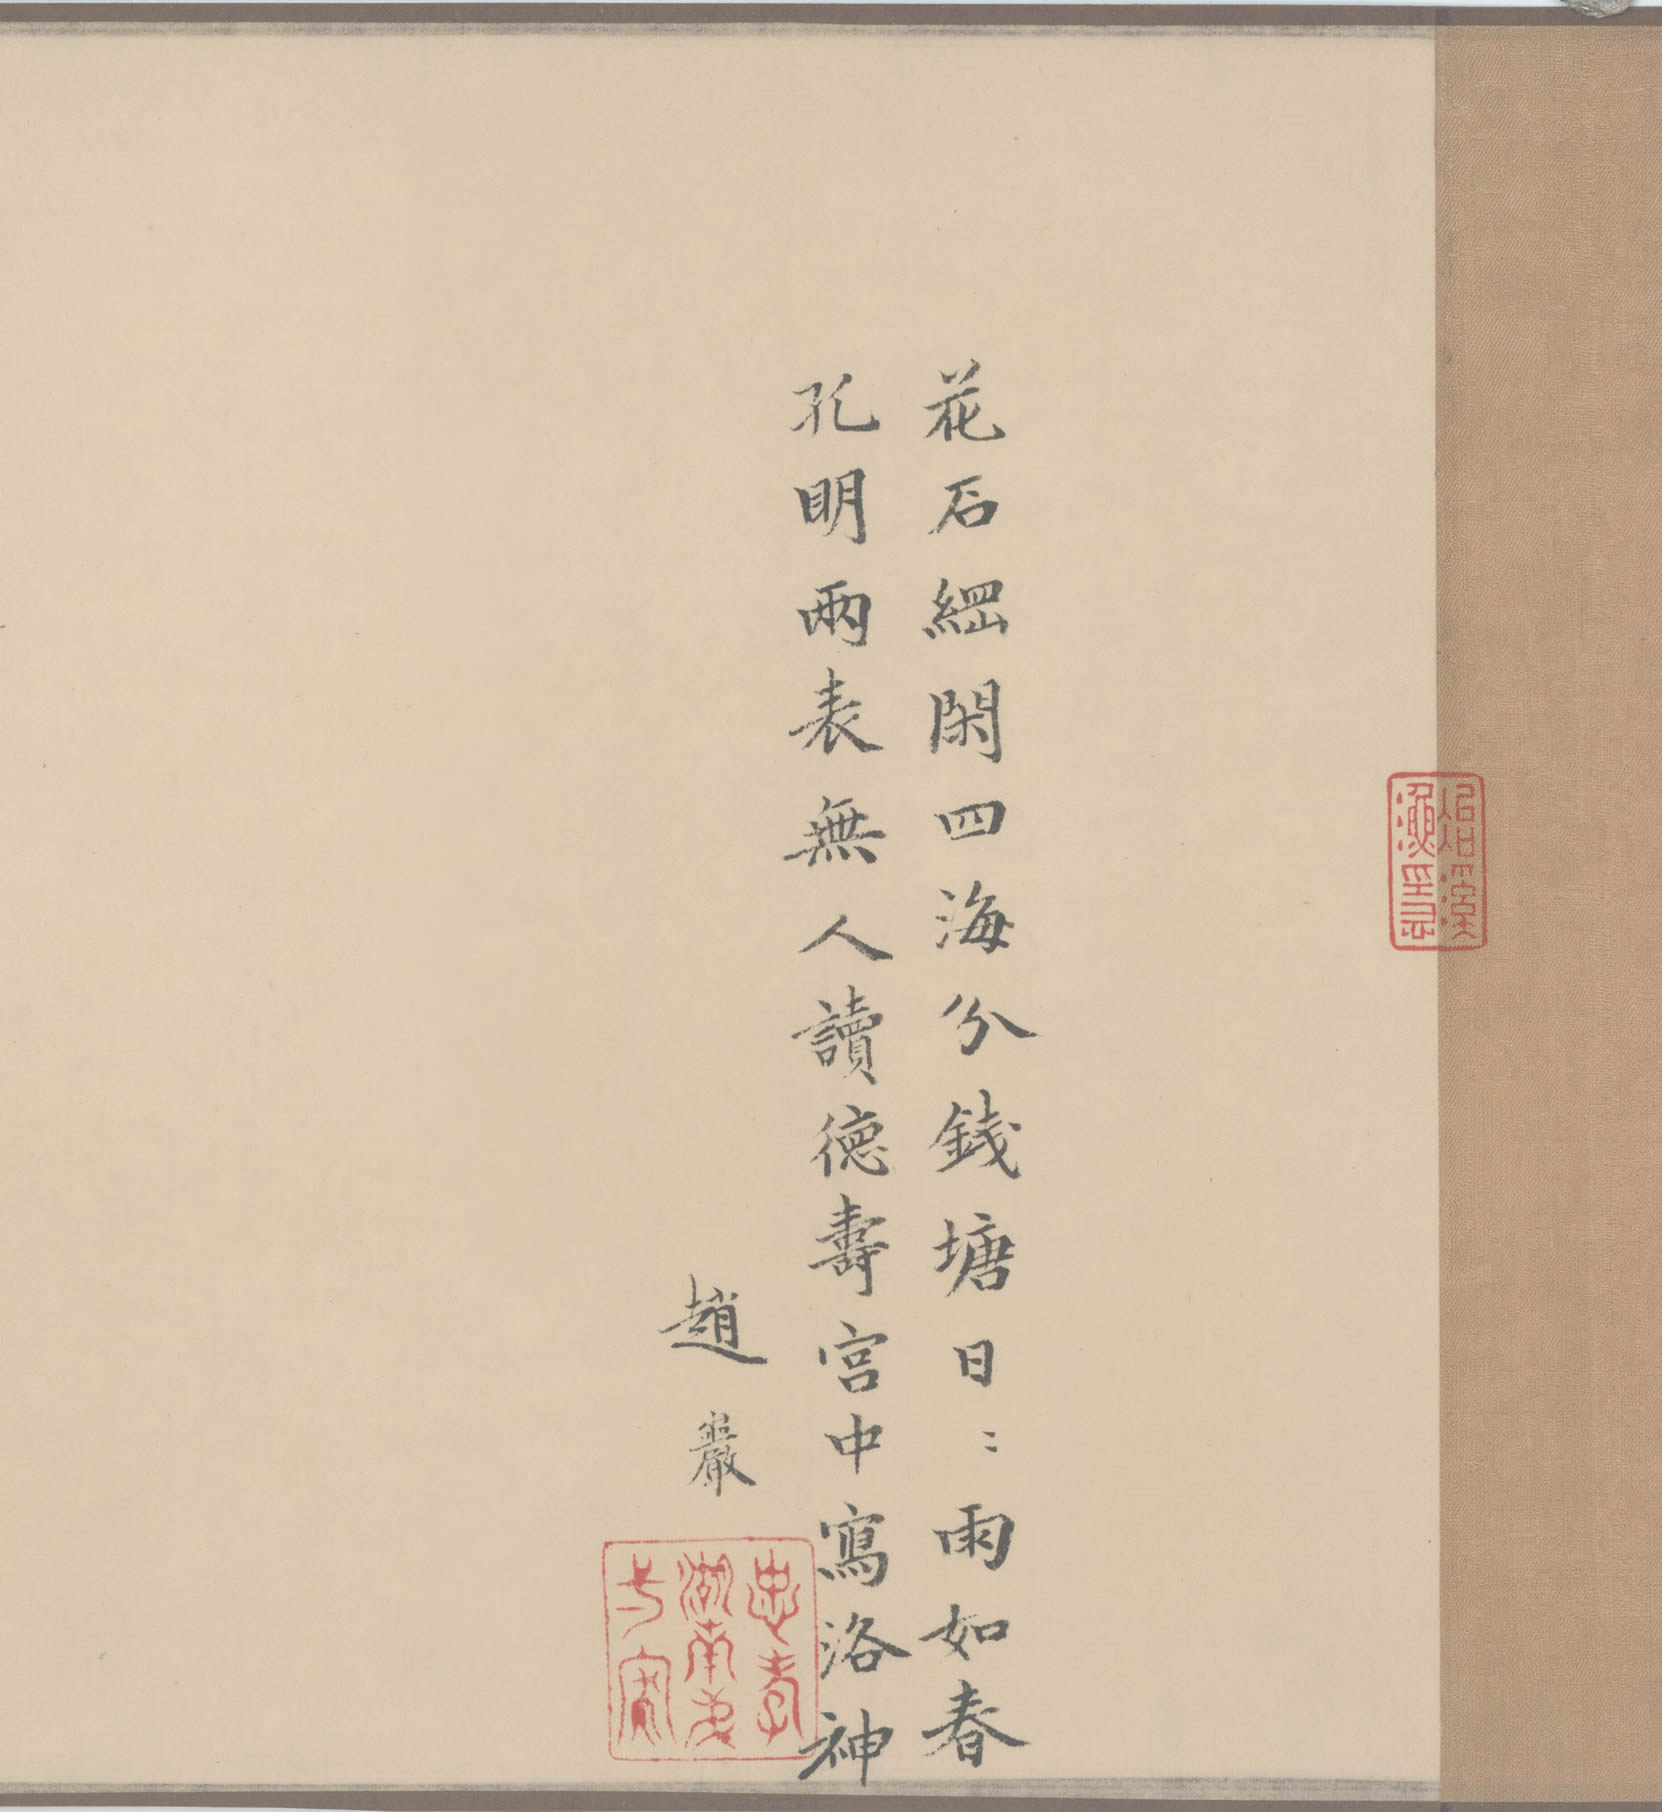 花石綱閑四海分錢塘日〻雨如春
孔明兩表無人讀德壽宮中寫洛神
趙巖